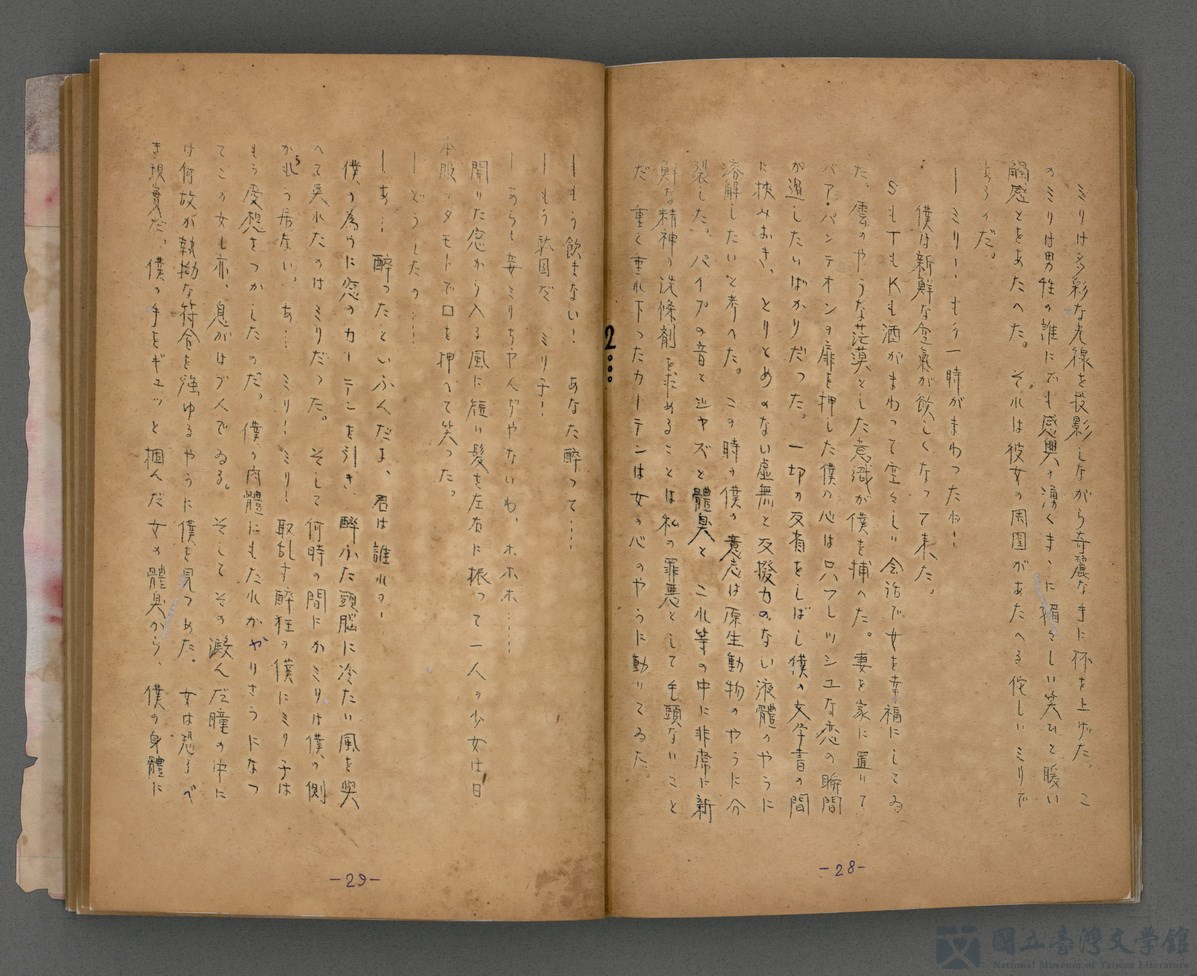 ミリは多彩な光線を投影しながら奇麗な手に杯を上げた。こ
のミリは男性の誰にでも感興の湧くまゝに媚々しい笑ひと暖い
觸感とをあたへた。それは彼女の周圍があたへる侘しいミリで
あるのだ。
ーミリー、もう一時がまわったねー
僕は新鮮な空氣が飲しくなって来た。
SもTもKも酒がまわって空々しい会話で女を幸福にしてゐ
た。雲のやうな茫漠とした意識が僕を捕へた。妻を家に置いて
バア・パンテオンの扉を押した僕の心は只フレッシュな恋の瞬間
が過したいばかりだった。一切の反省をしばし僕の文学書の間
に挾みおき、とりとめのない虚無と反撥力のない液體のやうに
溶解したいと考へた。この時の僕の意志は原生動物のやうに分
裂した。パイプの音とジャズと體臭と これ等の中に非常に新
鮮な精神の洗滌剤を求めることは私の罪悪として毛頭ないこと
だ 重く垂れ下ったカーテンは女の心のやうに動いてゐた
2
-28-
ーもう飲まない! あなた醉って……
ーもう歌国だ ミリ子!
ーあらと妾ミリちやんぢやないわ、ホホホ……
開いた窓から入る風に短い髪を左右に振って一人の少女は日
本服のタモトで口を押へて笑った。
ーどうしたの……
ーあ… 醉ったといふんだよ、君は誰れのー
僕の為めに窓のカーテンを引き 醉ふた頭脳に冷たい風を與
へて呉れたのはミリだった。そして何時の間にかミリは僕の側
から居ない。あ… ミリー、ミリー 取乱す醉狂の僕にミリ子は
もう愛想をつかしたのだ。僕の肉體にもたれかゝりさうになっ
てこの女も亦、息がはづんでゐる。そしてその澱んだ瞳の中に
は何故か執拗な符合を強ゆるやうに僕を見つめた。女は恐るべ
き現實だ、僕の手をギュッと掴んだ女の體臭から、僕の身體に
-29-
國立臺灣文學館
National Museum of Taiwan Literature